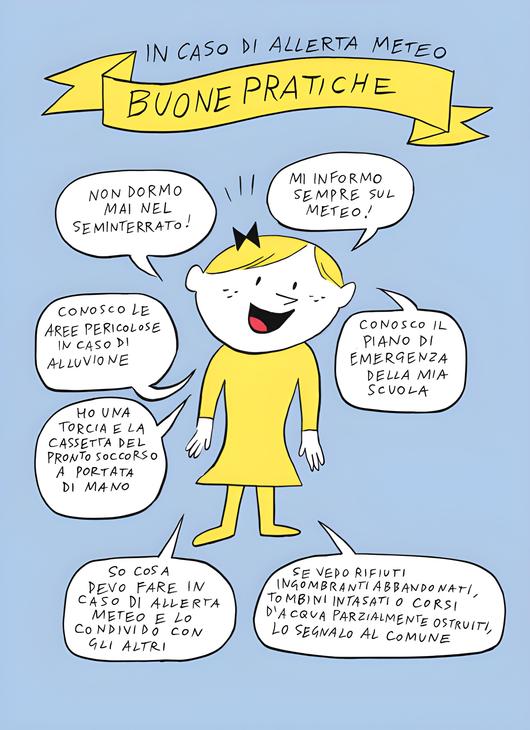 IN CASO DI ALLERTA METEO
BUONE PRATICHE
NON DORMO
MAI NEL
SEMINTERRATO!
MI INFORMO
SEMPRE SUL
METEO!
CONOSCO LE
AREE PERICOLOSE
IN CASO DI
ALLUVIONE
CONOSCO IL
PIANO DI
EMERGENZA
DELLA MIA
SCUOLA
HO UNA
TORCIA E LA
CASSETTA DEL
PRONTO SOCCORSO
A PORTATA
DI MANO
SO COSA
DEVO FARE IN
CASO DI ALLERTA
METEO E LO
CONDIVIDO CON
GLI ALTRI
SE VEDO RIFIUTI
INGOMBRANTI ABBANDONATI,
TOMBINI INTASATI O CORSI
D'ACQUA PARZIALMENTE OSTRUITI,
LO SEGNALO AL COMUNE